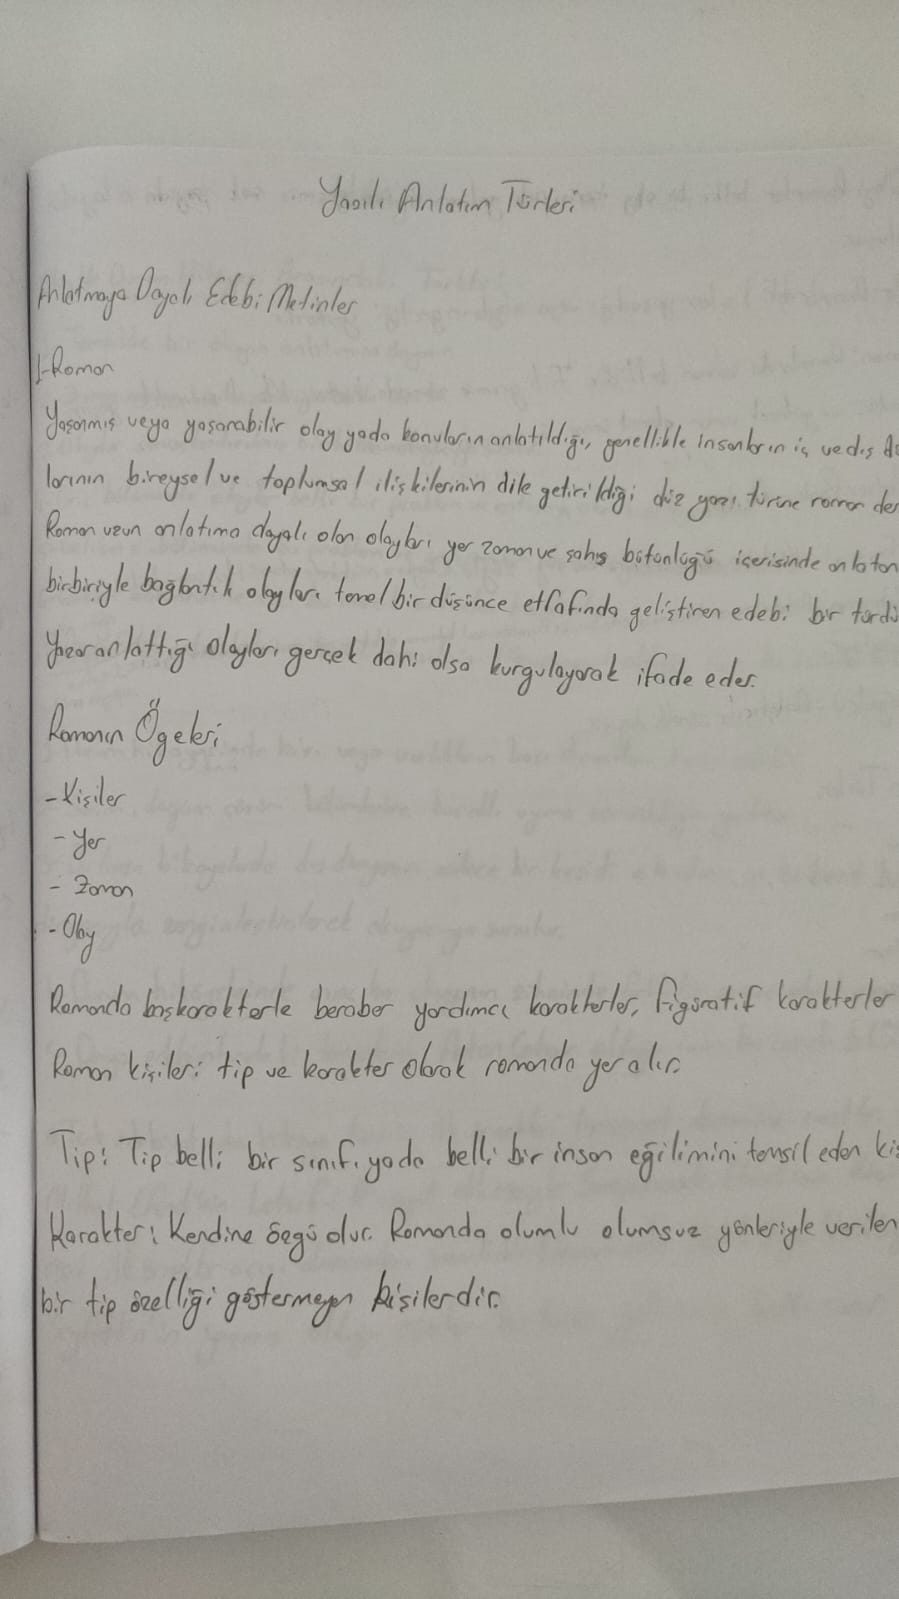 Yazılı Anlatım Türleri
Anlatmaya Dayalı Edebi Metinler
1-Roman
Yaşanmış veya yaşanabilir olay yada konuların anlatıldığı, genellikle insanların iç ve dış
larının bireysel ve toplumsal ilişkilerinin dile getirildiği düz yazı türüne roman
Roman uzun anlatıma dayalı olan olayları yer zaman ve şahıs bütünlüğü içerisinde anlatan
birbiriyle bağlantılı olayları temel bir düşünce etrafında geliştiren edebi bir türdü
Yazar anlattığı olayları gerçek dahi olsa kurgulayarak ifade eder.
Romanın Ögeleri
-Kişiler
-Yer
-Zaman
-Olay
Romanda başkarakterle beraber yardımcı karakterler, figüratif karakterler
Roman kişileri tip ve karakter olarak romanda yer alır.
Tip: Tip belli bir sınıfı yada belli bir insan eğilimini temsil eden
Karakter: Kendine özgü olur. Romanda olumlu olumsuz yönleriyle verilen
bir tip özelliği göstermeyen kişilerdir.